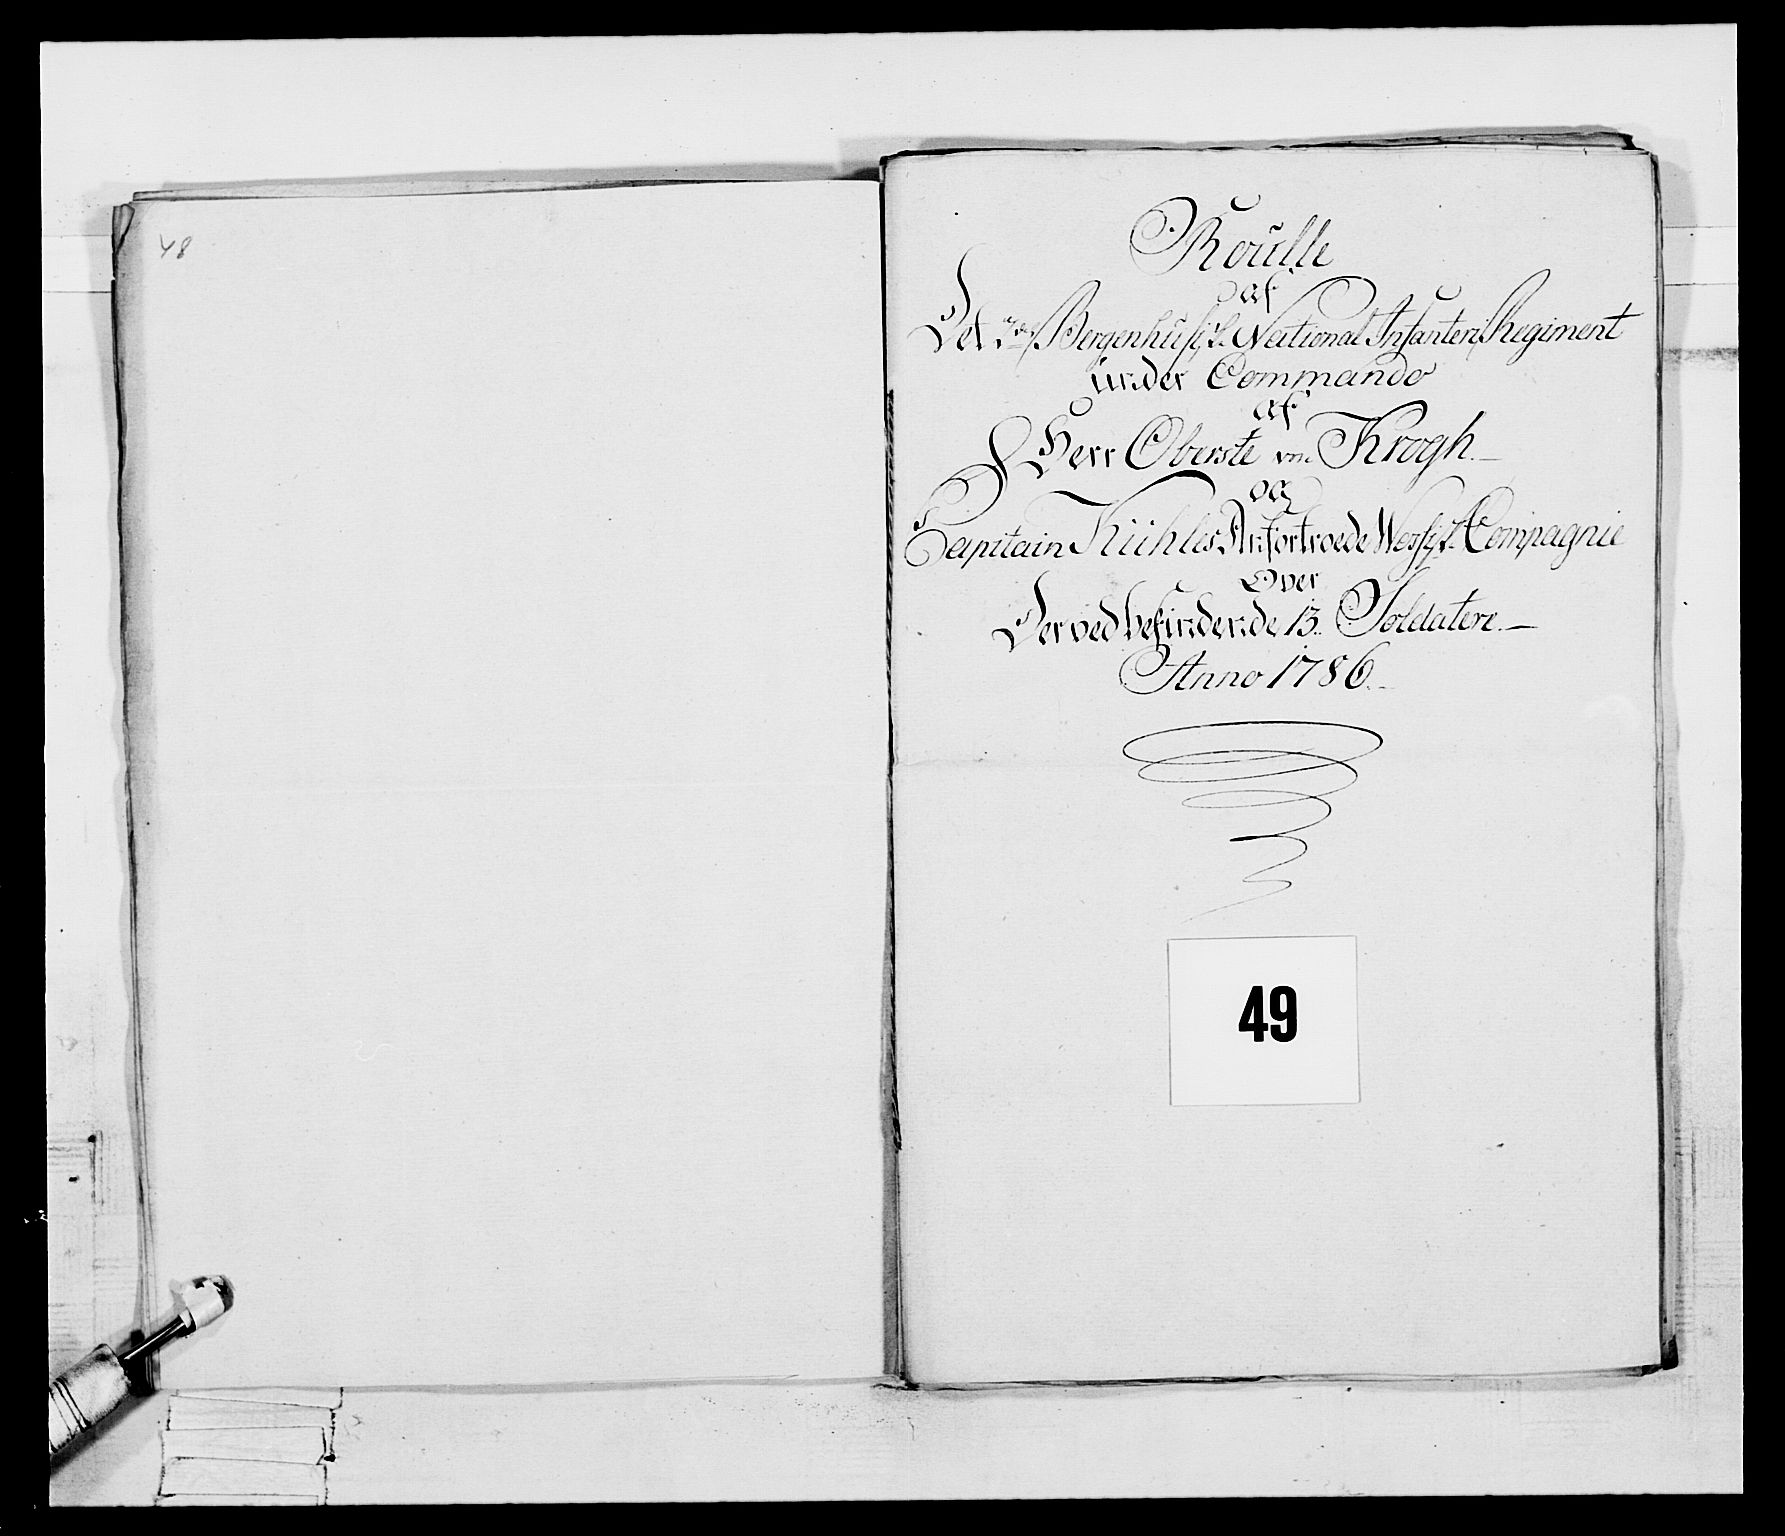 48
Roulle
af
Det 2det Bergenhusiske National Infanterie Regiment
under Commando
af
Herr Oberste von Krogh.
og
Capitain Kühles Anfortroede Wossiske Compagnie
Over
Der ved befindende 13. Soldatere.
Anno 1786.
49